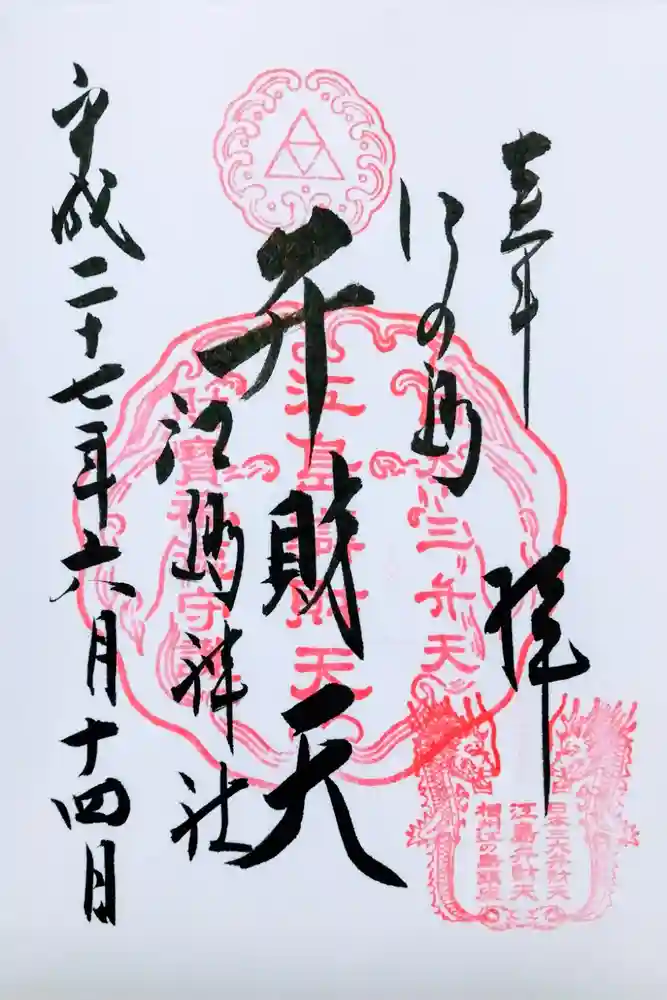 奉拝
江の島
弁財天
江島神社
平成二十七年六月十四日
日本三弁天
財天
日本三大弁財天
江島弁財天